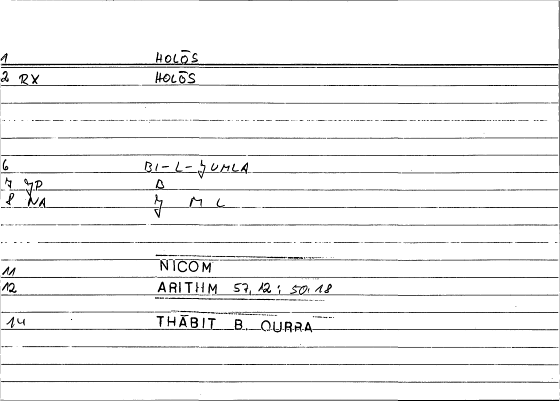 1 HOLŌS
2 RX HOLŌS
6 BI-L-JUMLA
7 JP B
8 NA J M L
11 NICOM
12 ARITHM 57,12; 50,18
14 THĀBIT B. QURRA